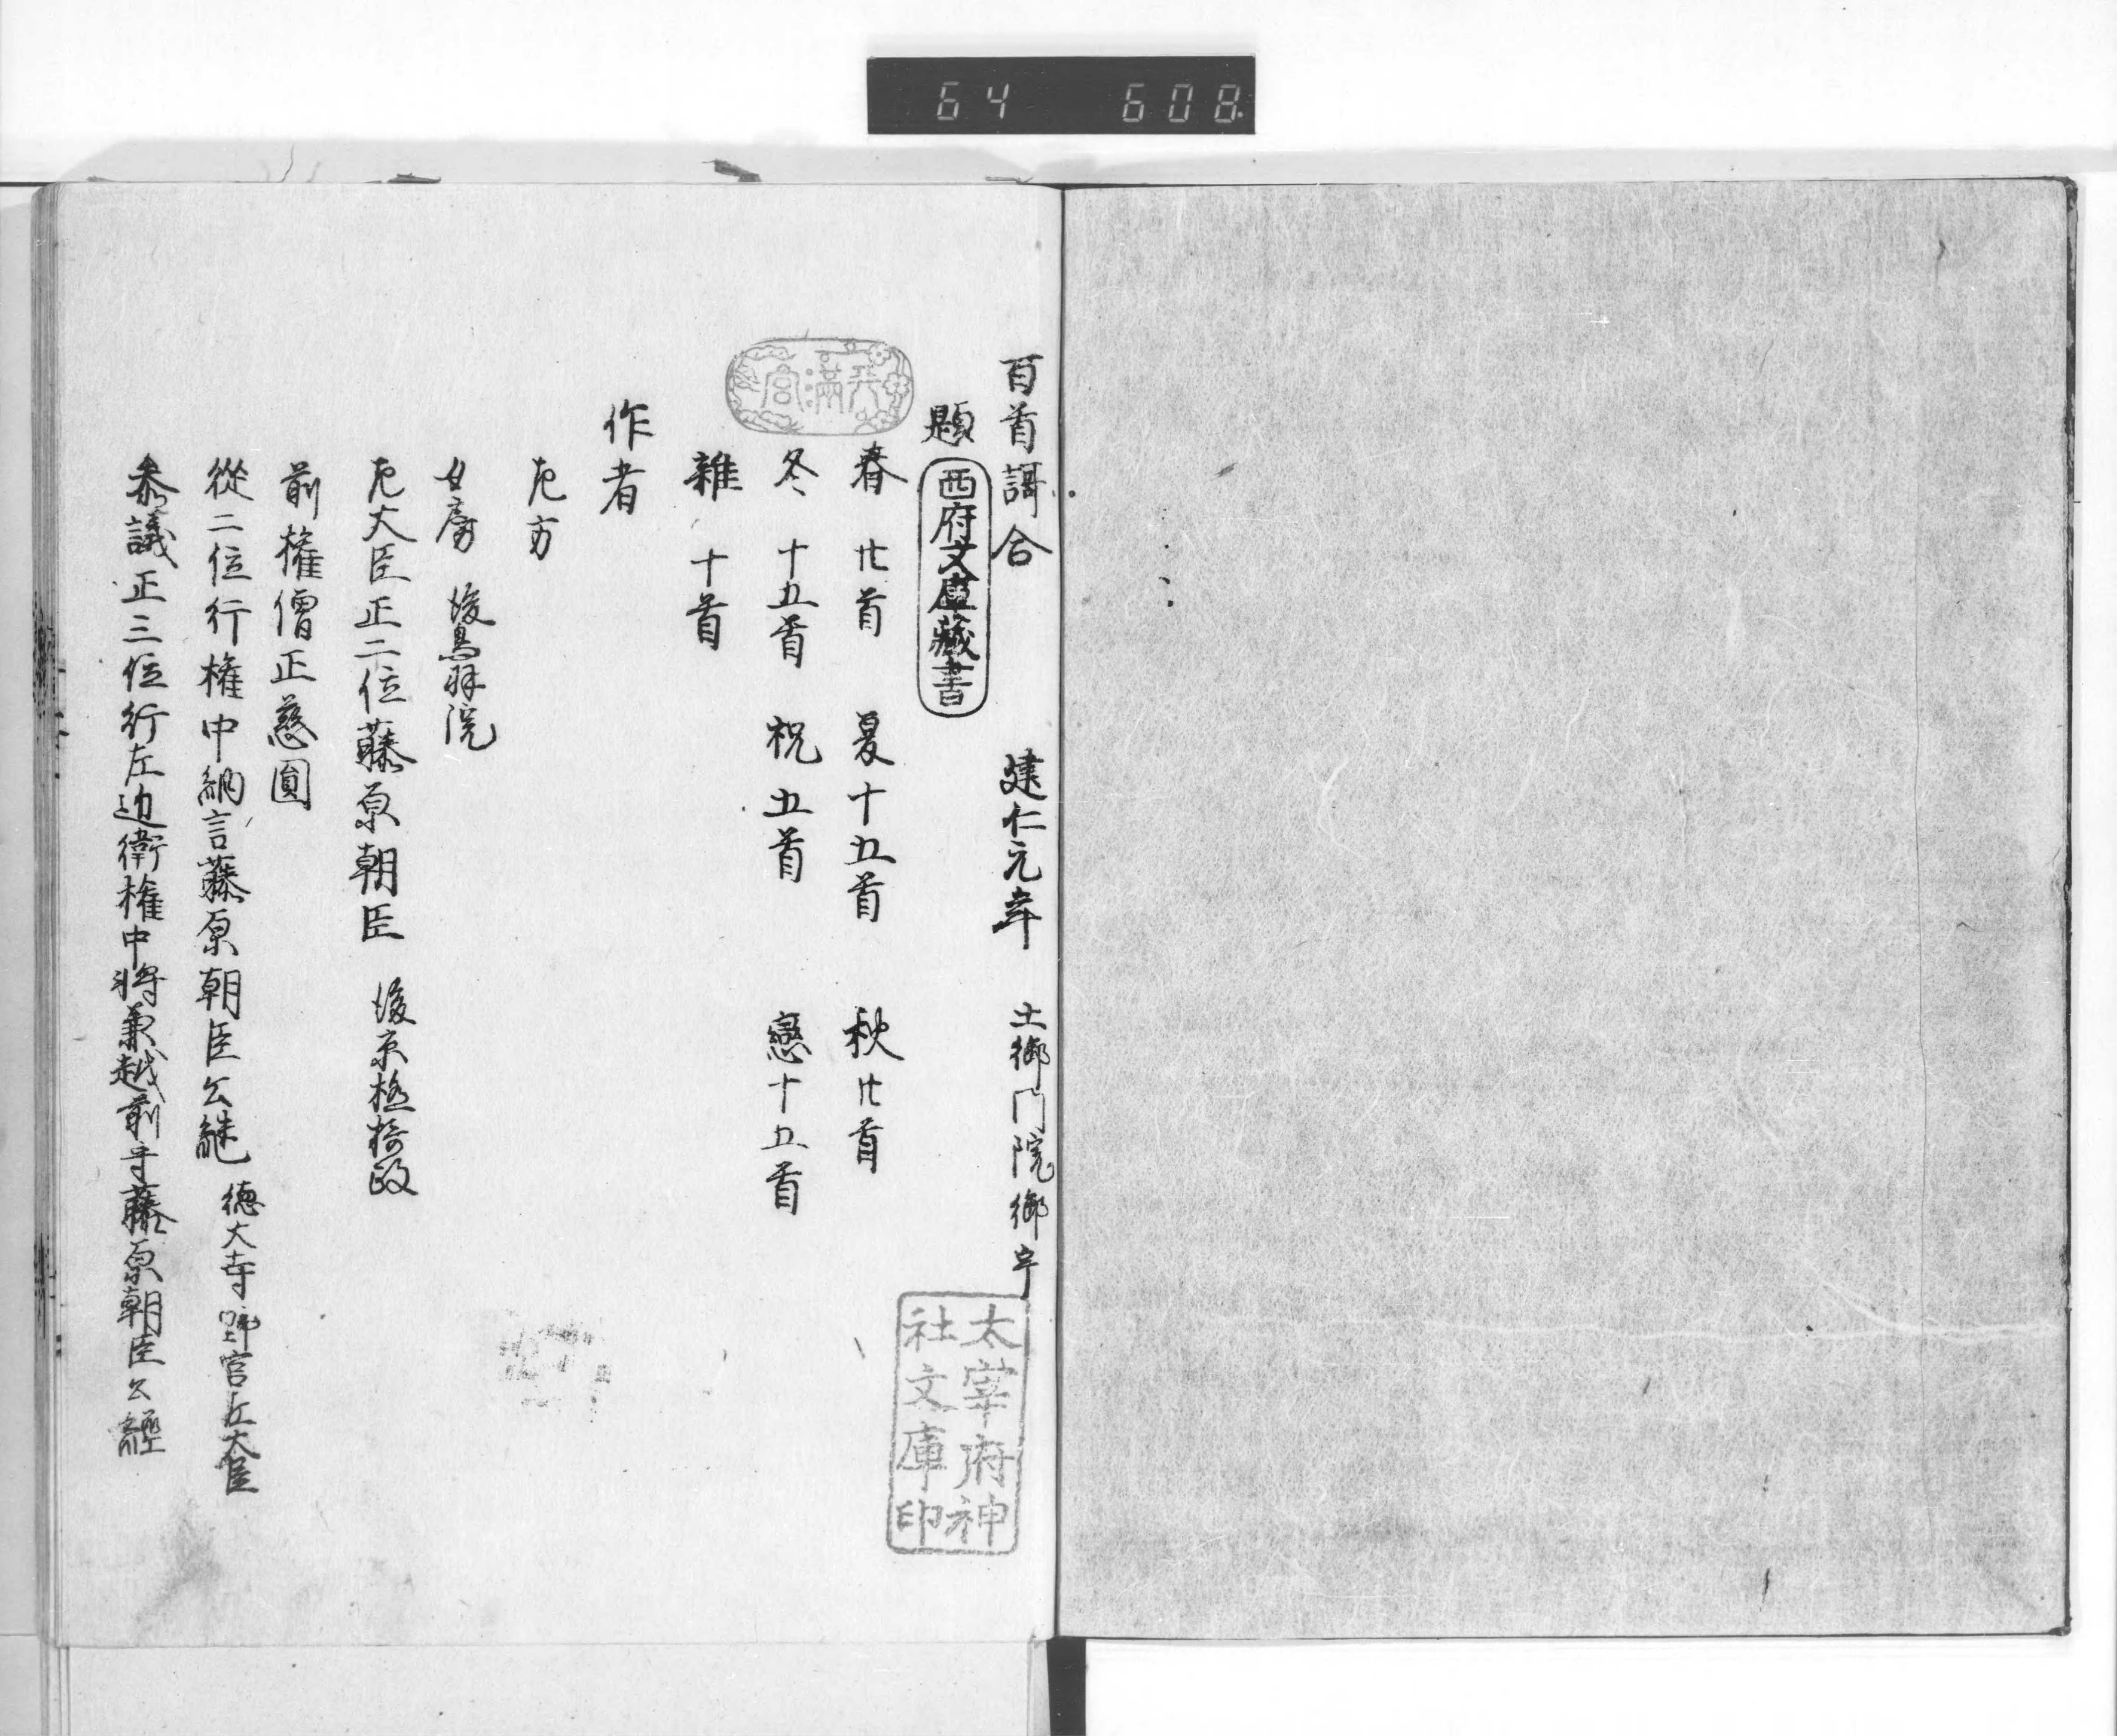 64 608
百首謌合 建仁元年 土御門院御宇
題
西府文庫藏書
春廿首 夏十五首 秋廿首
冬十五首 祝五首 戀十五首
雜十首
天満宮
作者
左方
女房 後鳥羽院
左大臣正二位藤原朝臣 後京極摂政
前權僧正慈圓
從二位行權中納言藤原朝臣公継 徳大寺 野宮左大臣
参議正三位行左近衛權中将兼越前守藤原朝臣公經
太宰府神
社文庫印